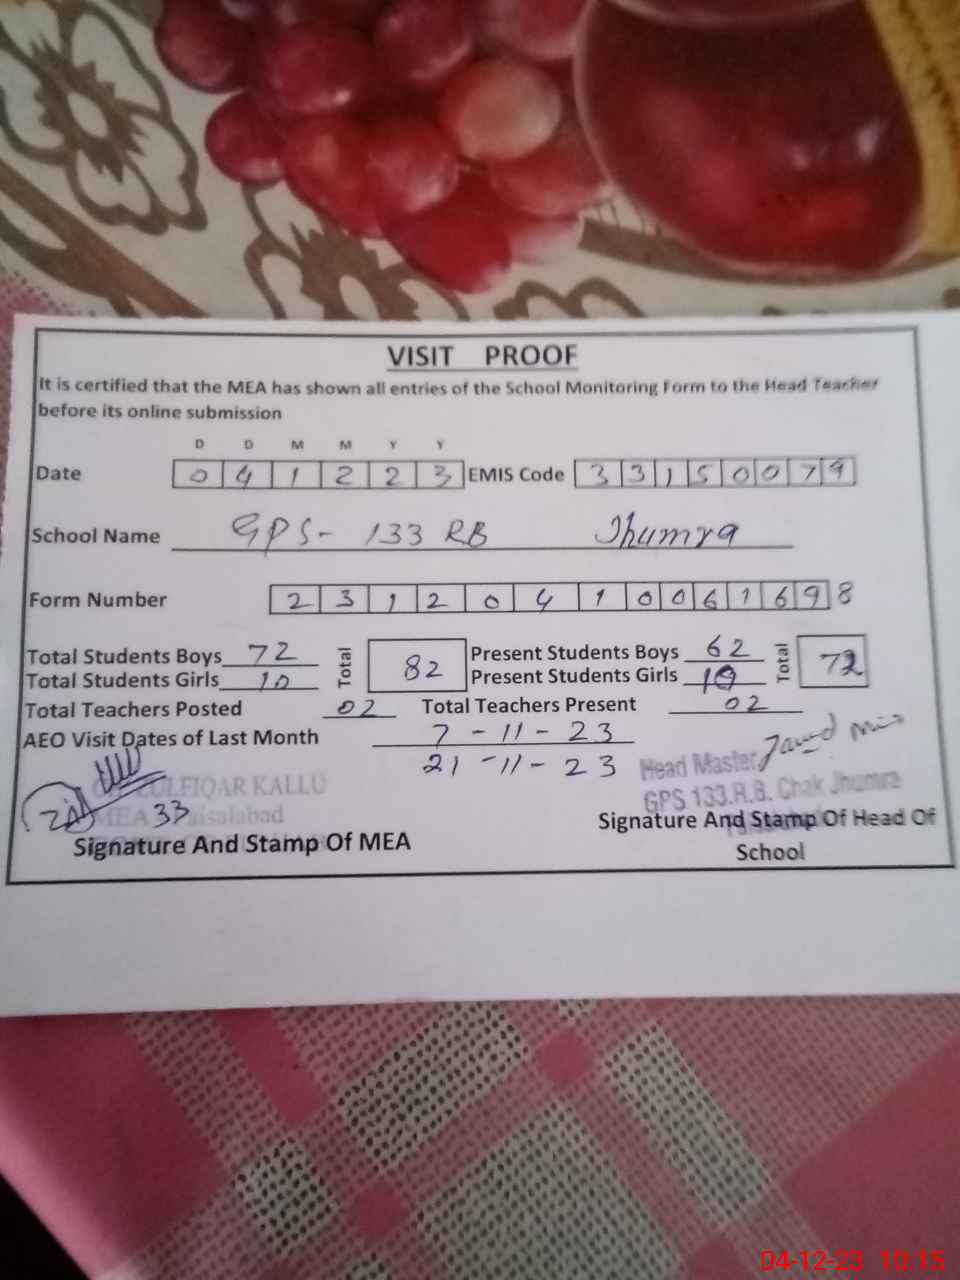 VISIT PROOF
It is certified that the MEA has shown all entries of the School Monitoring Form to the Head Teacher
before its online submission
D D M M Y Y
Date 0 4 1 2 2 3 EMIS Code 3 3 1 5 0 0 7 9
School Name GPS- 133 RB Jhumra
Form Number 2 3 1 2 0 4 1 0 0 6 1 6 9 8
Total Students Boys 72 Total 82 Present Students Boys 62 Total 72
Total Students Girls 10 Present Students Girls 10
Total Teachers Posted 02 Total Teachers Present 02
AEO Visit Dates of Last Month 7-11-23
21-11-23
ULFIQAR KALLU Head Master
MEA 33 Faisalabad GPS 133.R.B. Chak Jhumra
Signature And Stamp Of MEA Signature And Stamp Of Head Of
School
04-12-23 10:15